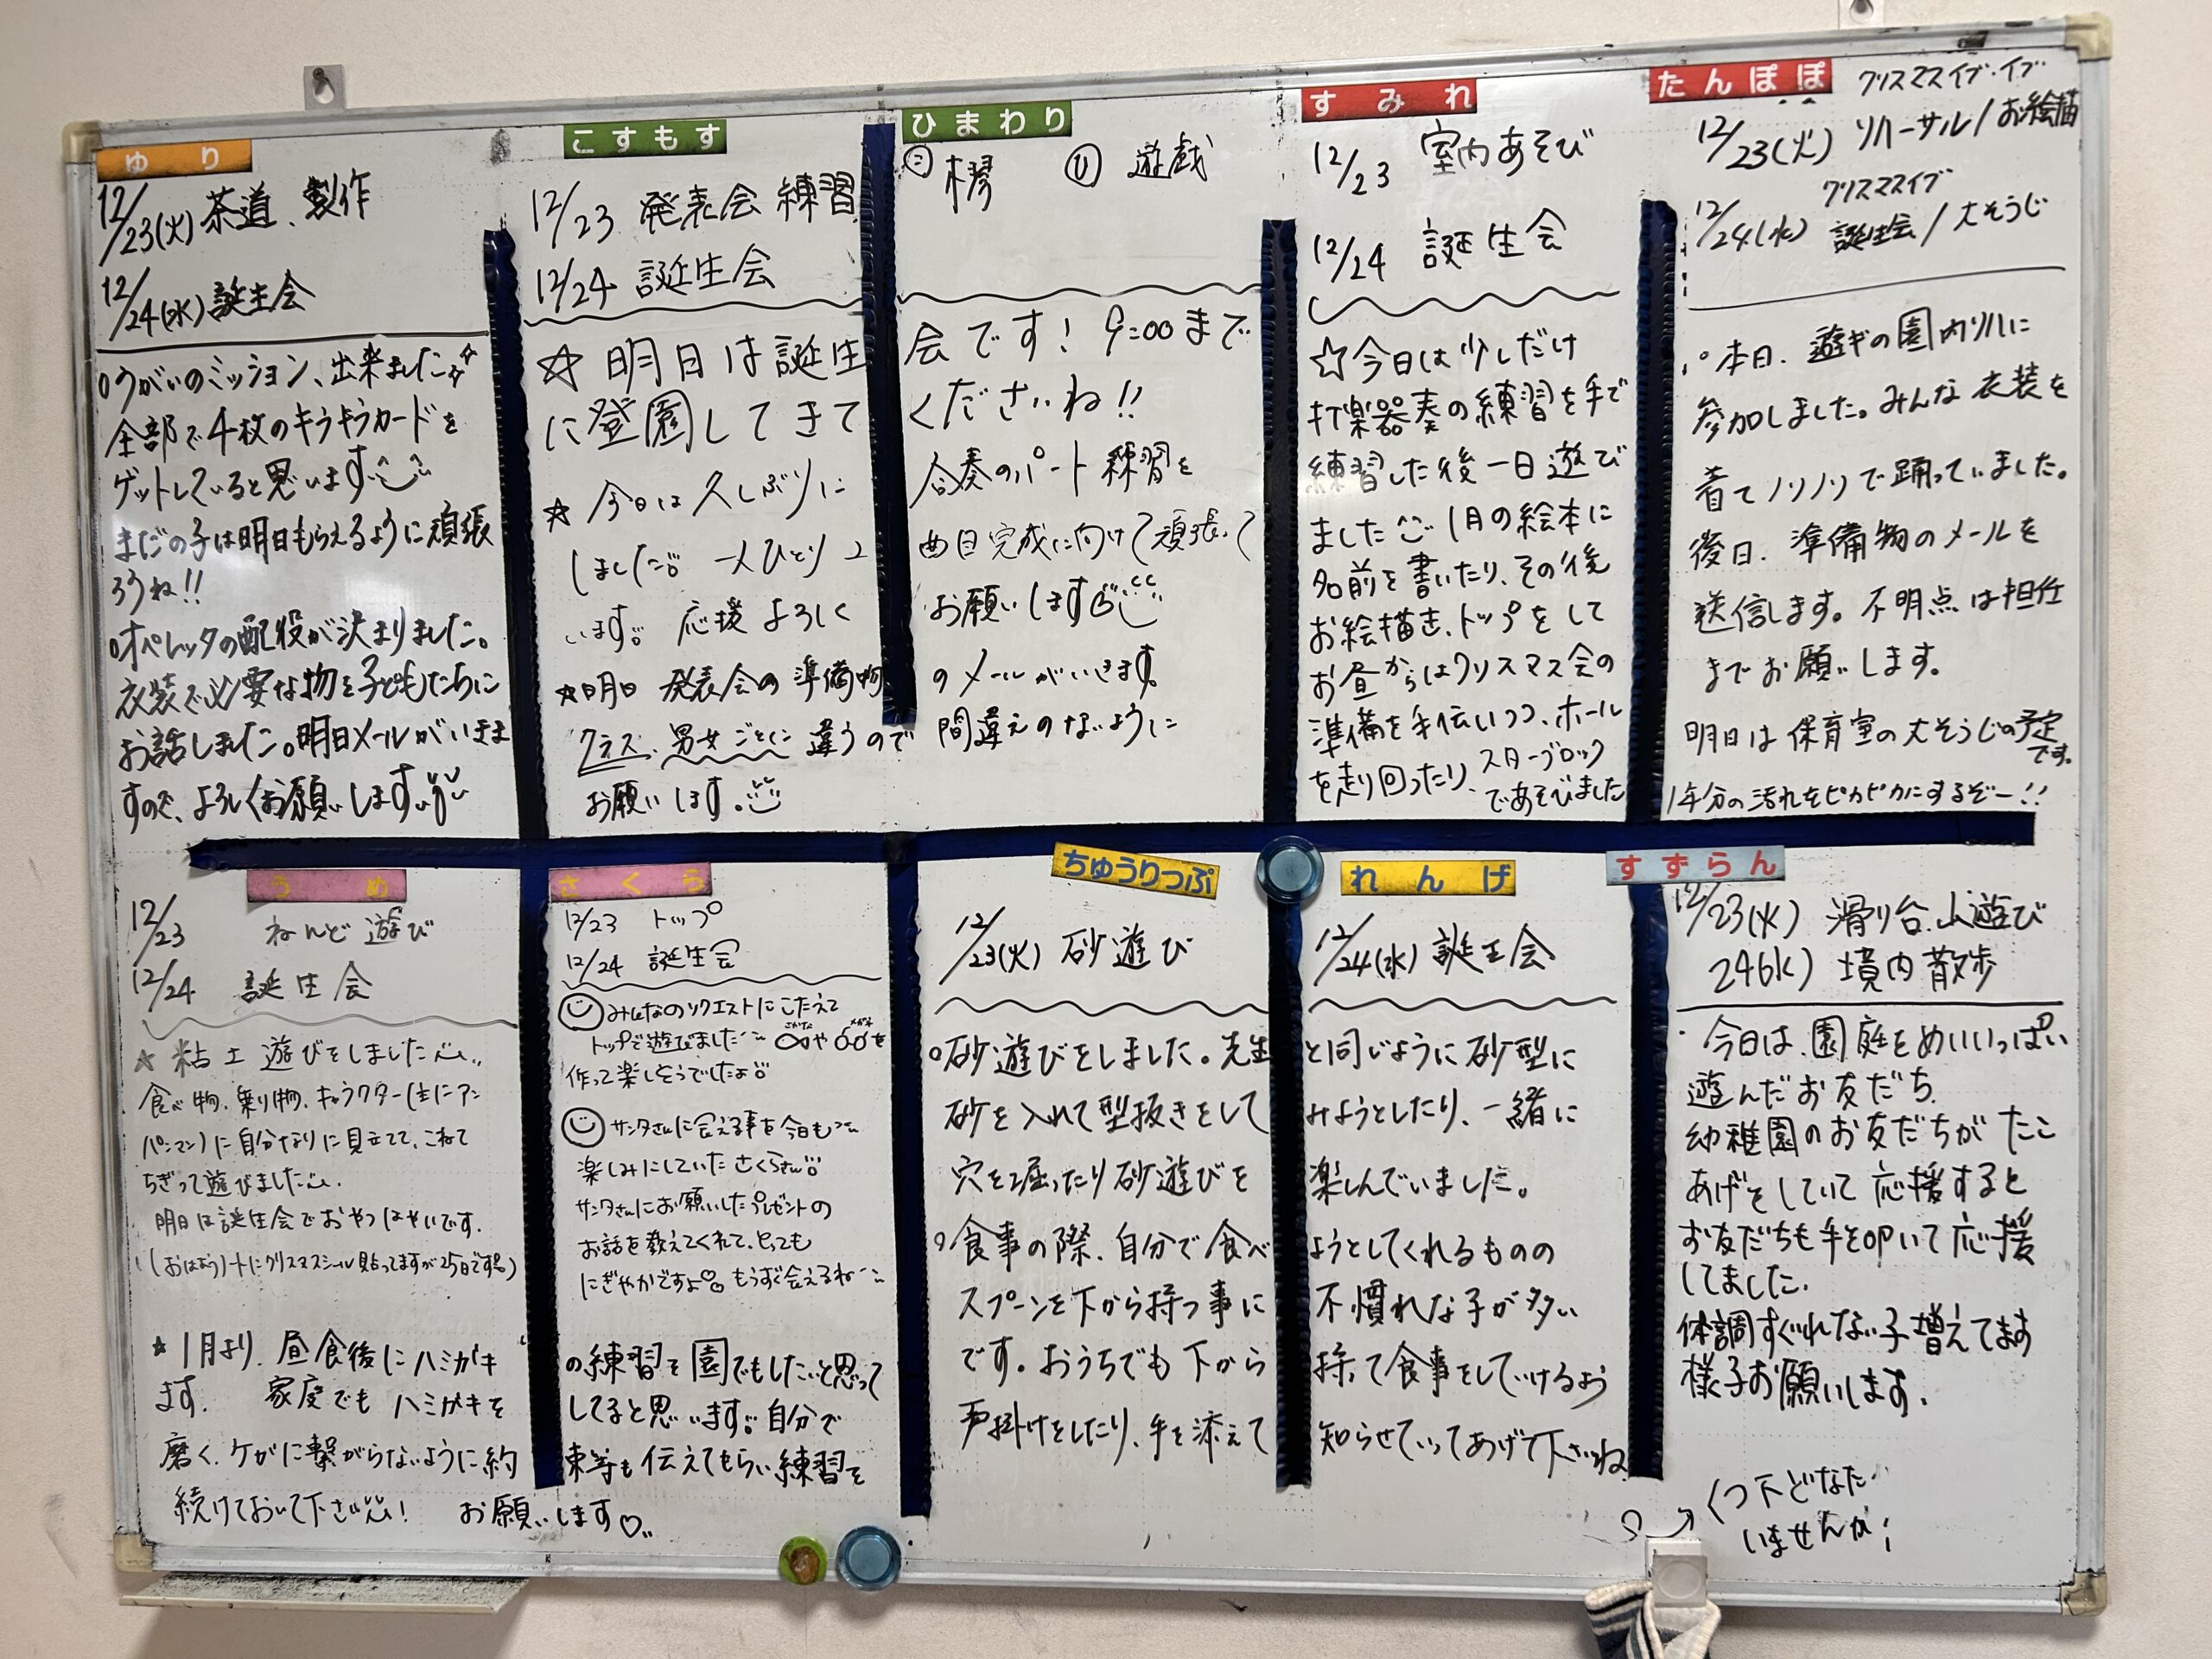 ゆり
12/23(火) 茶道、製作
12/24(水) 誕生会
○うがいのミッション、出来ました☆
全部で4枚のキラキラカードを
ゲットしていると思います
まだの子は明日もらえるように頑張
ろうね!!
○オペレッタの配役が決まりました。
衣装で必要な物を子どもたちに
お話しました。明日メールがいきま
すので、よろしくお願いします
こすもす ひまわり
12/23 発表会練習 ㋙ 楽 ㋪ 遊戯
12/24 誕生会
☆ 明日は誕生会です! 9:00まで
に登園してきてくださいね!!
☆ 今日は久しぶりに合奏のパート練習を
しました。一人ひとり 曲目完成に向けて頑張って
います。応援よろしくお願いします
☆明日 発表会の準備物のメールがいきます。
クラス、男女ごとに違うので間違えのないように
お願いします。
すみれ
12/23 室内あそび
12/24 誕生会
☆今日は少しだけ
打楽器奏の練習を手で
練習した後一日遊び
ました 1月の絵本に
名前を書いたり、その後
お絵描き、トップをして
お昼からはクリスマス会の
準備を手伝いつつ、ホール
を走り回ったり、スターブロック
であそびました
たんぽぽ
クリスマスイブ・イブ
12/23(火) リハーサル/お絵描
クリスマスイブ
12/24(水) 誕生会/大そうじ
○本日、遊ギの園内リハに
参加しました。みんな衣装を
着てノリノリで踊っていました。
後日、準備物のメールを
送信します。不明点は担任
までお願いします。
明日は保育室の大そうじの予定
です。
1年分の汚れをピカピカにするぞー!!
うめ
12/23 ねんど遊び
12/24 誕生会
★ 粘土遊びをしました
食べ物、乗り物、キャラクター(主にアン
パンマン)に自分なりに見立てて、こねて
ちぎって遊びました
明日は誕生会でおやつはやいです.
さくら
12/23 トップ
12/24 誕生会
みんなのリクエストにこたえて
トップで遊びました さかな や メガネ を
作って楽しそうでしたよ
サンタさんに会える事を今日も
楽しみにしていたさくらさん
サンタさんにお願いしたプレゼントの
お話を教えてくれて、とっても
にぎやかですよ♡ もうすぐ会えるね
★ 1月より、昼食後にハミガキの練習を園でもしたいと思って
ます. 家庭でもハミガキをしてると思います。自分で
磨く、ケガに繋がらないように約束等も伝えてもらい練習を
続けておいて下さい! お願いします♡
ちゅうりっぷ れんげ
12/23(火) 砂遊び 12/24(水) 誕生会
○砂遊びをしました。先生と同じように砂型に
砂を入れて型抜きをしてみようとしたり、一緒に
穴を掘ったり砂遊びを楽しんでいました。
○食事の際、自分で食べようとしてくれるものの
スプーンを下から持つ事に不慣れな子が多い
です。おうちでも下から持って食事をしていけるよう
声掛けをしたり、手を添えて知らせていってあげて下さいね
すずらん
12/23(火) 滑り台、山遊び
24(水) 境内散歩
・今日は、園庭をめいいっぱい
遊んだお友だち.
幼稚園のお友だちがたこ
あげをしていて応援すると
お友だちも手を叩いて応援
してました.
体調すぐれない子増えてます
様子お願いします.
くつ下どなたか
いませんか;